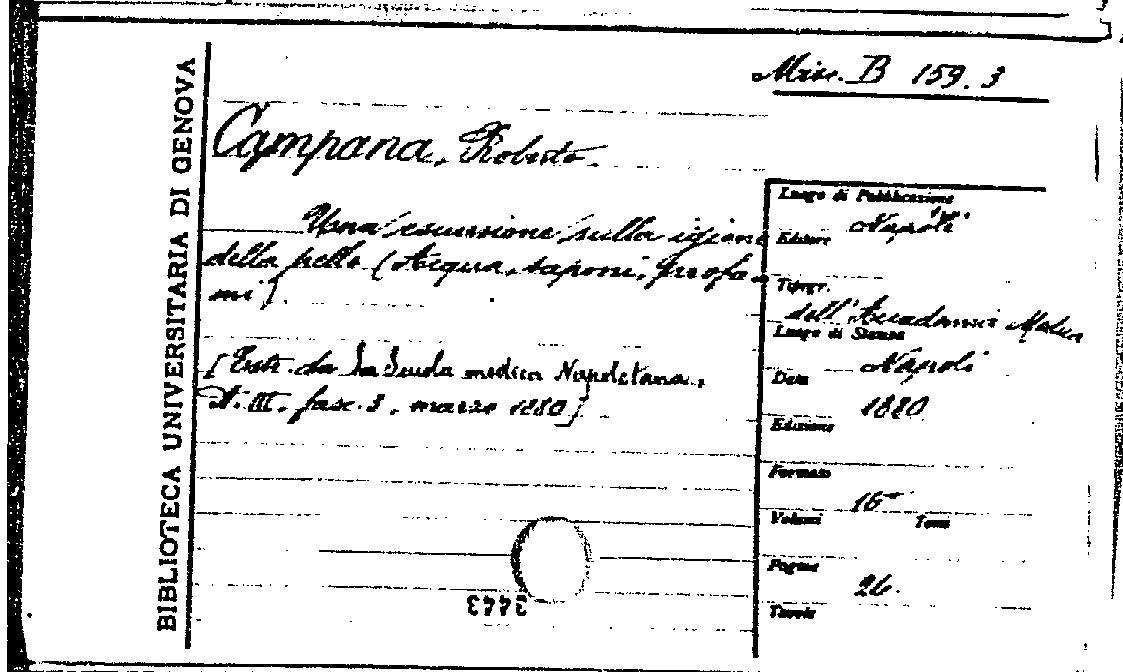 BIBLIOTECA UNIVERSITARIA DI GENOVA
Misc. B 159. 3
Campana, Roberto.
Una escursione sulla igiene
della pelle (Acqua, saponi, profu-
mi).
[Estr. da La Scuola medica Napoletana.
A. III. fasc. 3. marzo 1880]
Luogo di Pubblicazione
Napoli
Editore
Tipogr.
dell'Accademia
Luogo di Stampa
Napoli
Data
1880
Edizione
Formato
16°
Volumi Tomi
Pagine
26.
Tavole
3443